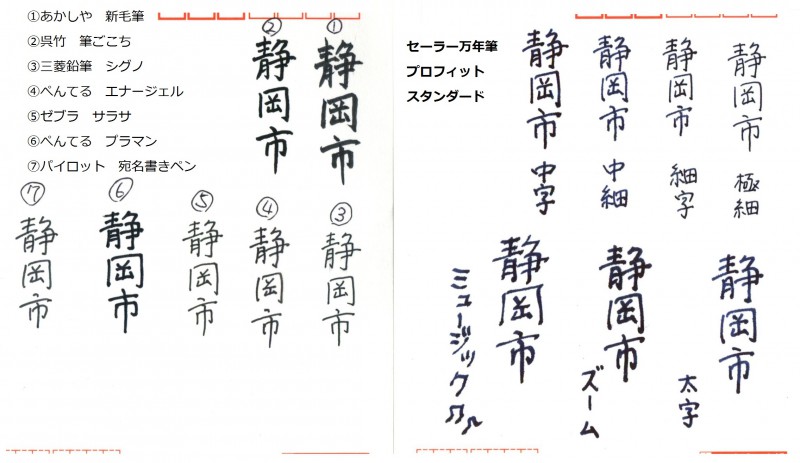 ①あかしや 新毛筆
②呉竹 筆ごこち
③三菱鉛筆 シグノ
④ぺんてる エナージェル
⑤ゼブラ サラサ
⑥ぺんてる プラマン
⑦パイロット 宛名書きペン
①
静岡市
②
静岡市
③
静岡市
④
静岡市
⑤
静岡市
⑥
静岡市
⑦
静岡市
セーラー万年筆
プロフィット
スタンダード
静岡市 極細
静岡市 細字
静岡市 中細
静岡市 中字
静岡市
太字
静岡市
ズーム
静岡市
ミュージック♫♪